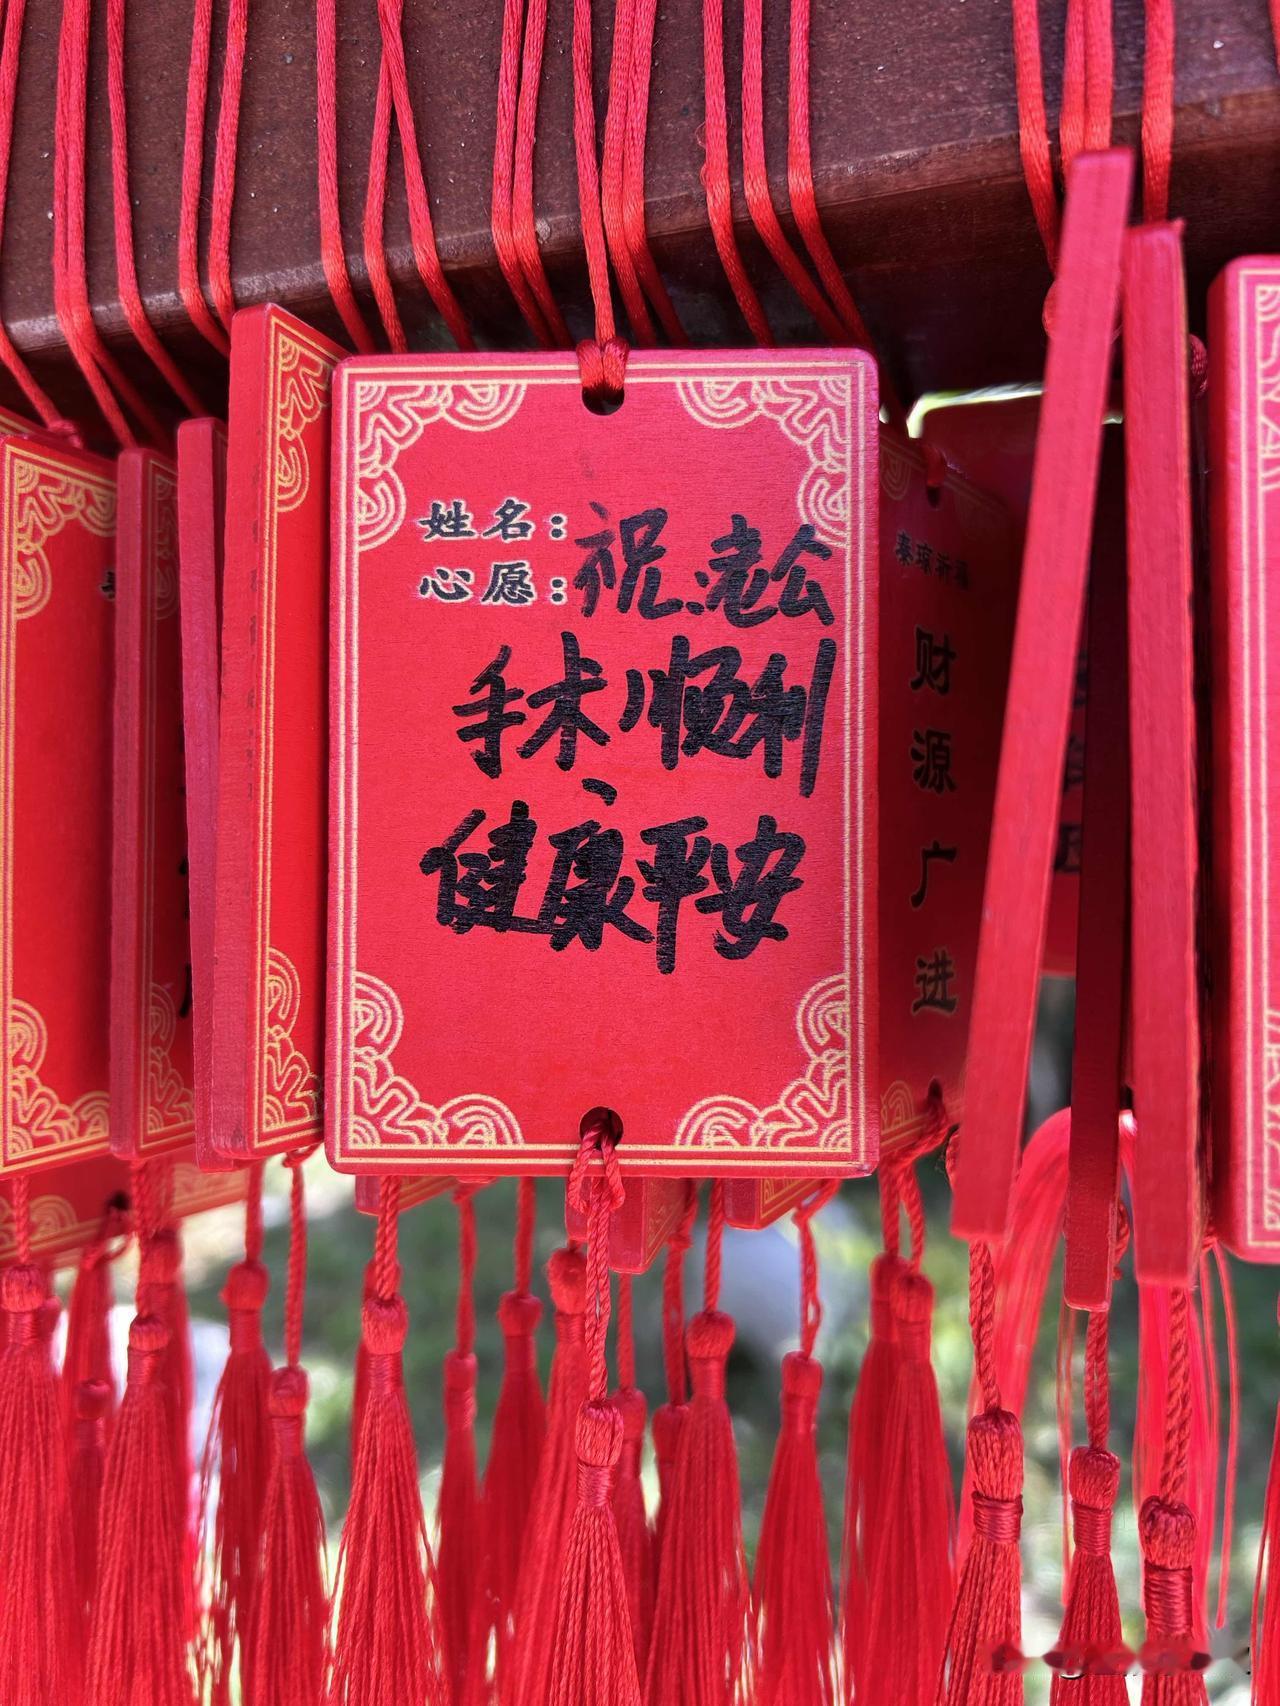 姓名：
心愿：祝老公
手术顺利
健康平安
秦琼祈福
财源广进